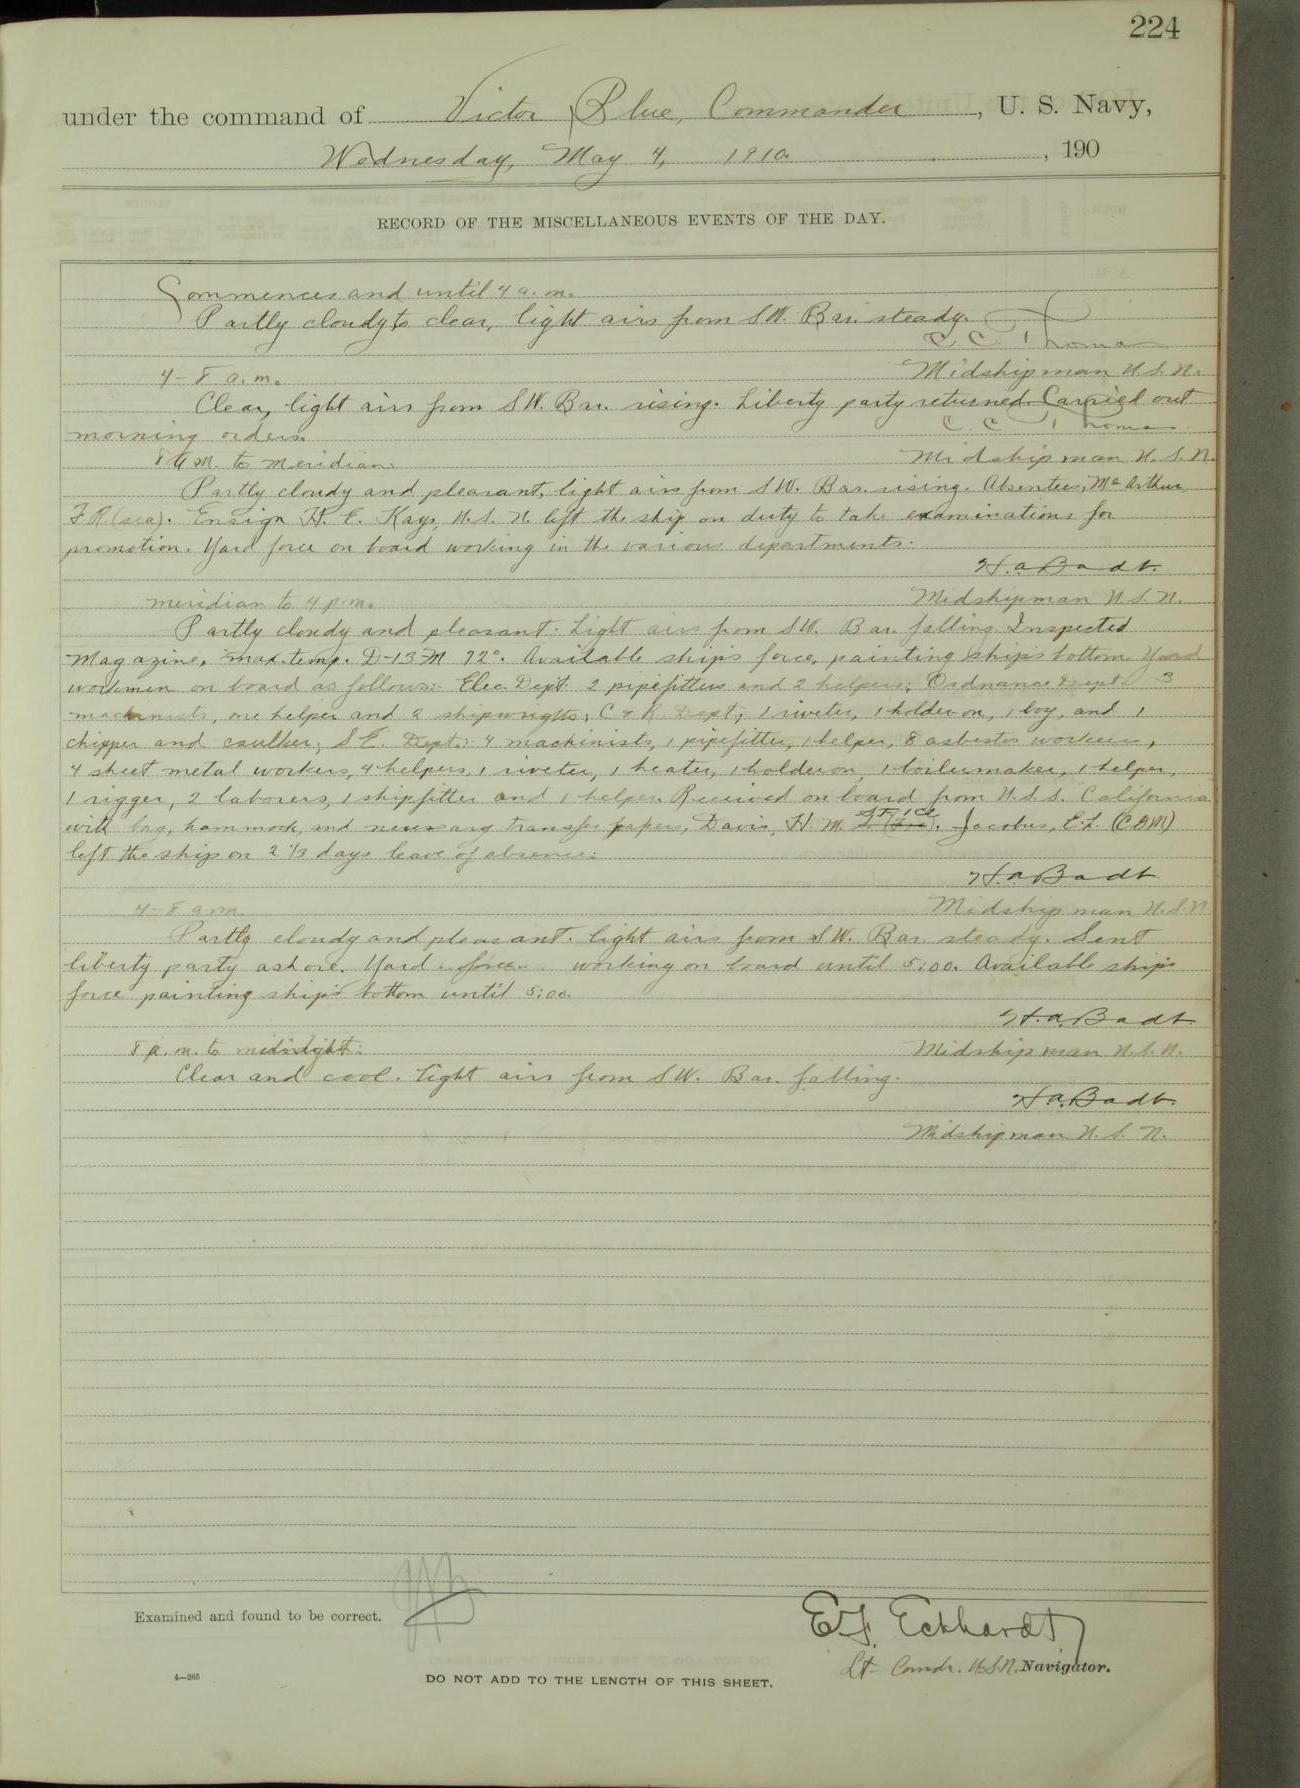 224
under the command of Victor Blue, Commander, U. S. Navy,
Wednesday, May 4, 1910, 190
RECORD OF THE MISCELLANEOUS EVENTS OF THE DAY.
Commences and until 4 a.m.
Partly cloudy to clear, light airs from SW. Bar. steady.
C. C. Thomas
4-8 a.m. Midshipman U.S.N.
Clear, light airs from SW. Bar. rising. Liberty party returned. Carried out
morning orders. C. C. Thomas
8 a.m. to meridian: Midshipman U.S.N.
Partly cloudy and pleasant, light airs from SW. Bar. rising. Absentees, McArthur,
F.R. (sea). Ensign H. E. Kays, U.S.N. left the ship on duty to take examinations for
promotion. Yard force on board working in the various departments.
H.A. Badt.
meridian to 4 p.m. Midshipman U.S.N.
Partly cloudy and pleasant. Light airs from SW. Bar. falling. Inspected
Magazine, max. temp. D-13-M 72°. Available ship's force, painting ship's bottom. Yard
workmen on board as follows: Elec. Dept. 2 pipefitters and 2 helpers; Ordnance Dept. 3
machinists, one helper and 2 shipwrights; C & R Dept; 1 riveter, 1 holder on, 1 boy, and 1
chipper and caulker; S.E. Dept.: 4 machinists, 1 pipefitter, 1 helper, 8 asbestos workers,
4 sheet metal workers, 4 helpers, 1 riveter, 1 heater, 1 holder on, 1 boilermaker, 1 helper,
1 rigger, 2 laborers, 1 shipfitter and 1 helper. Received on board from U.S.S. California
with bag, hammock, and necessary transfer papers, Davis, H. M. SF 1 Cl. Jacobus, E.L. (CGM)
left the ship on 2 1/3 days leave of absence:
H.A. Badt
4-8 a.m. Midshipman U.S.N.
Partly cloudy and pleasant. light airs from SW. Bar. steady. Sent
liberty party ashore. Yard force working on board until 5:00. Available ship's
force painting ship's bottom until 5:00.
H.A. Badt
8 p.m. to midnight: Midshipman U.S.N.
Clear and cool. light airs from SW. Bar. falling.
H.A. Badt.
Midshipman U.S.N.
Examined and found to be correct.
E.F. Eckhardt
Lt- Comdr. U.S.N. Navigator.
4—265
DO NOT ADD TO THE LENGTH OF THIS SHEET.